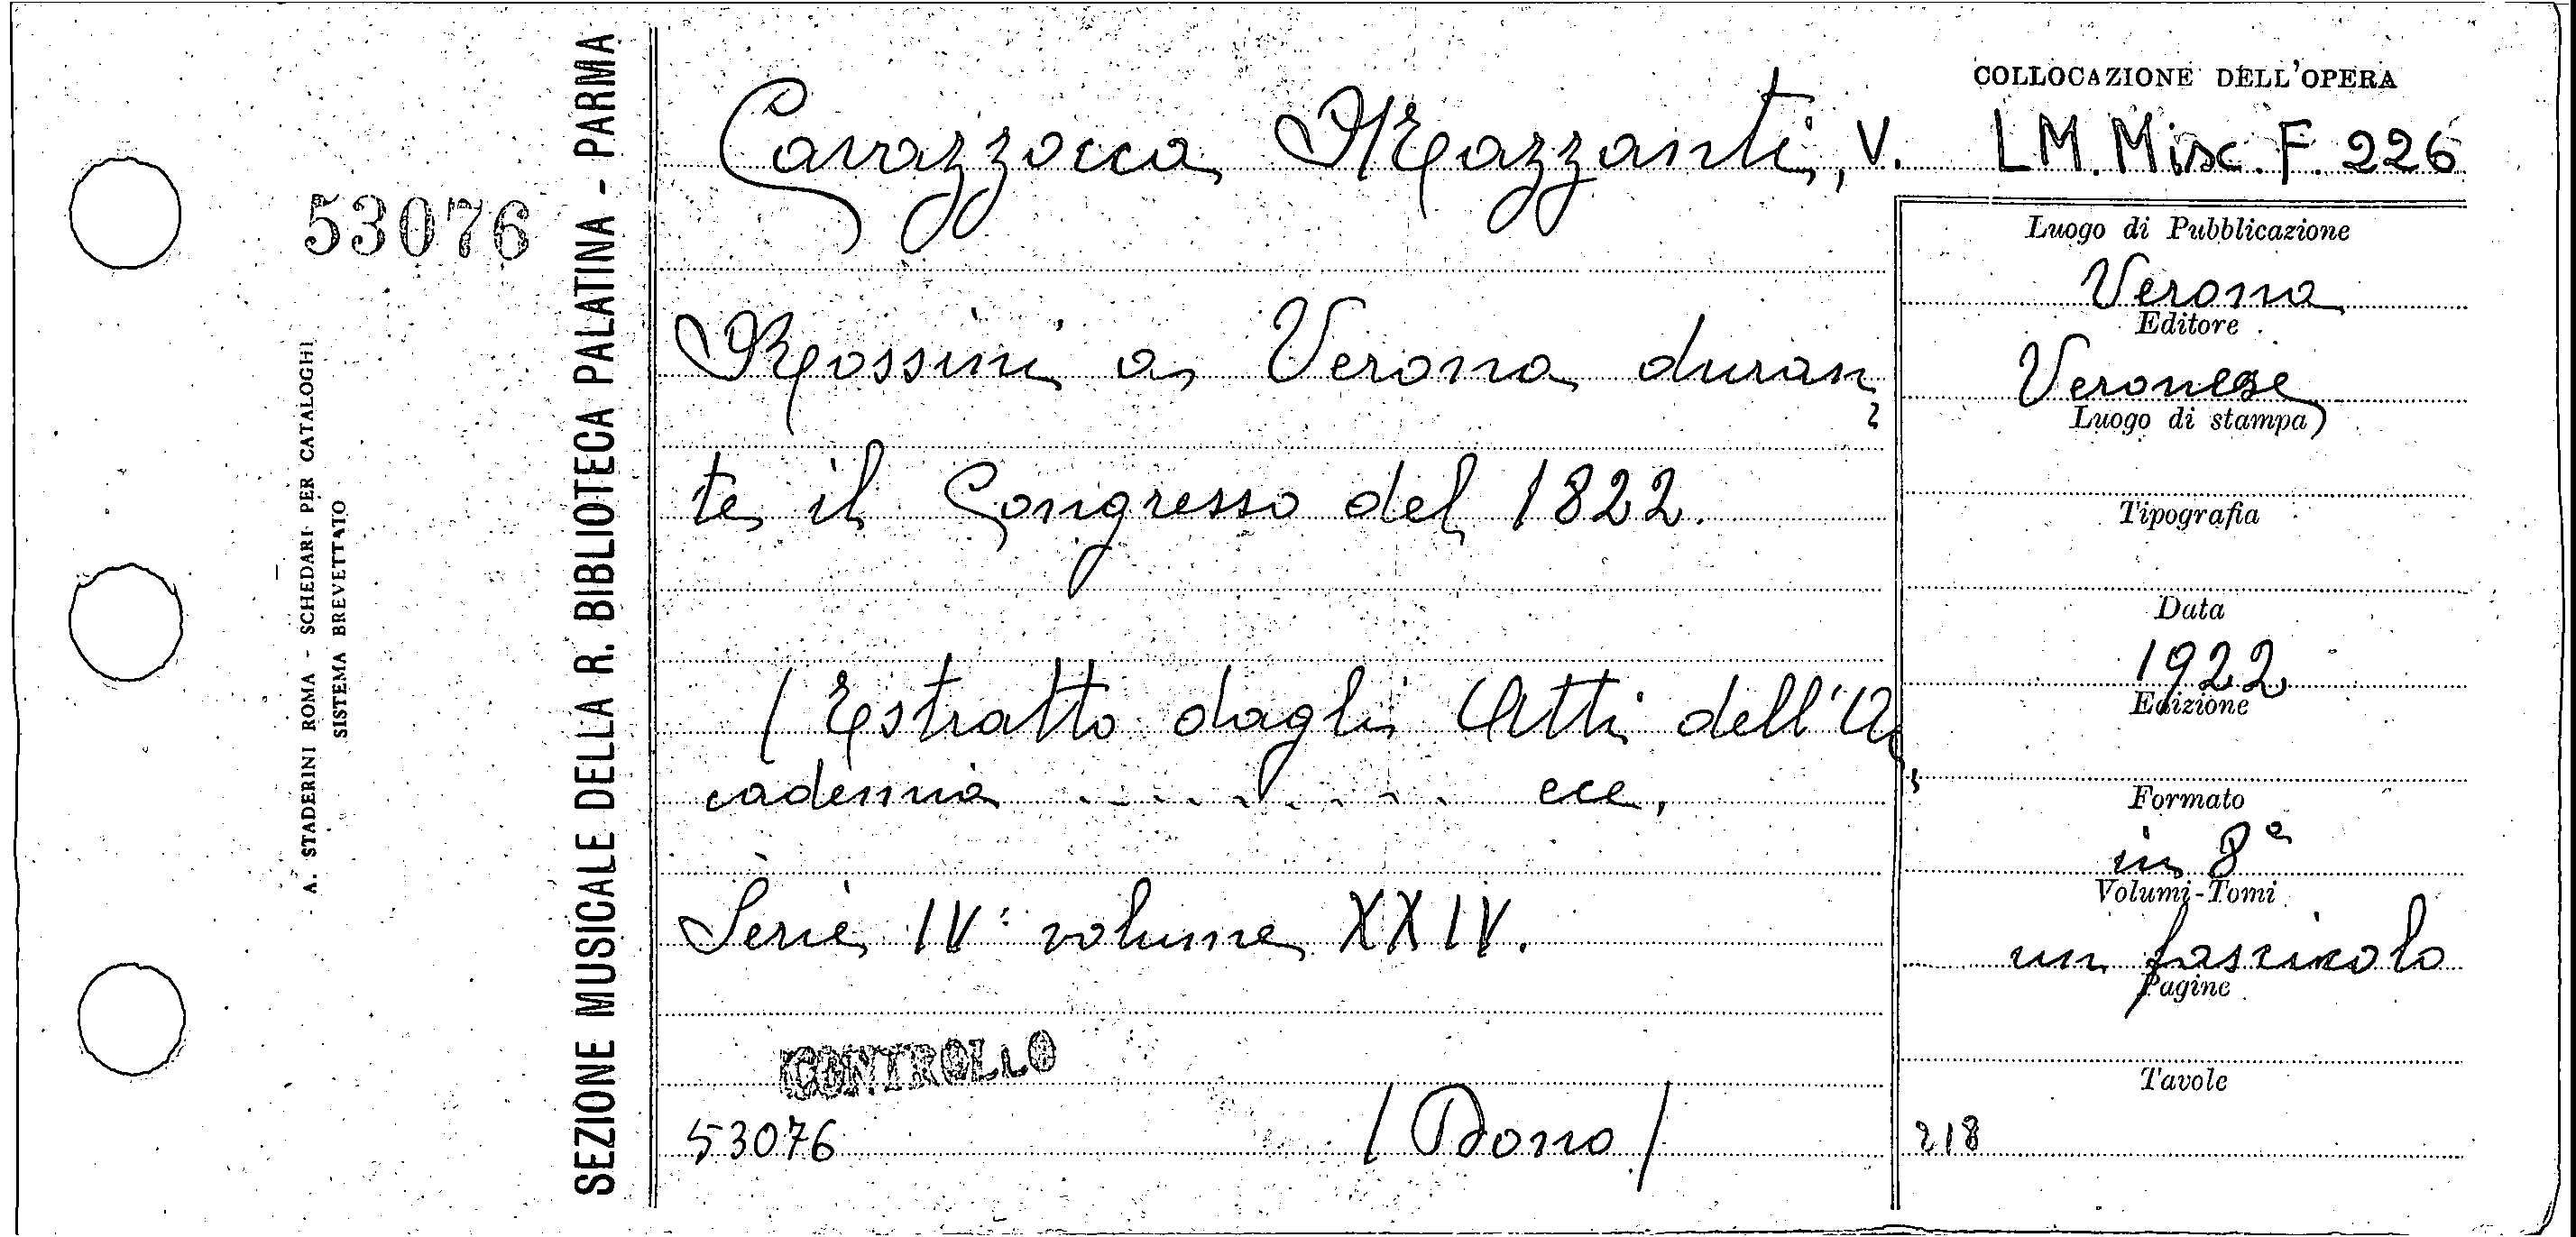 53076
A. STADERINI ROMA - SCHEDARI PER CATALOGHI
SISTEMA BREVETTATO
SEZIONE MUSICALE DELLA R. BIBLIOTECA PALATINA - PARMA
Cavazzocca Mazzanti, V.
Rossini a Verona duran
te il Congresso del 1822.
(Estratto dagli Atti dell'Ac
cademia ......... ecc.
Serie IV: volume XXIV.
CONTROLLO
53076 (Dono)
COLLOCAZIONE DELL'OPERA
LM. Misc. F. 226
Luogo di Pubblicazione
Verona
Editore
Veronese
Luogo di stampa
Tipografia
Data
1922
Edizione
Formato
in 8°
Volumi-Tomi
un fascicolo
Pagine
Tavole
218